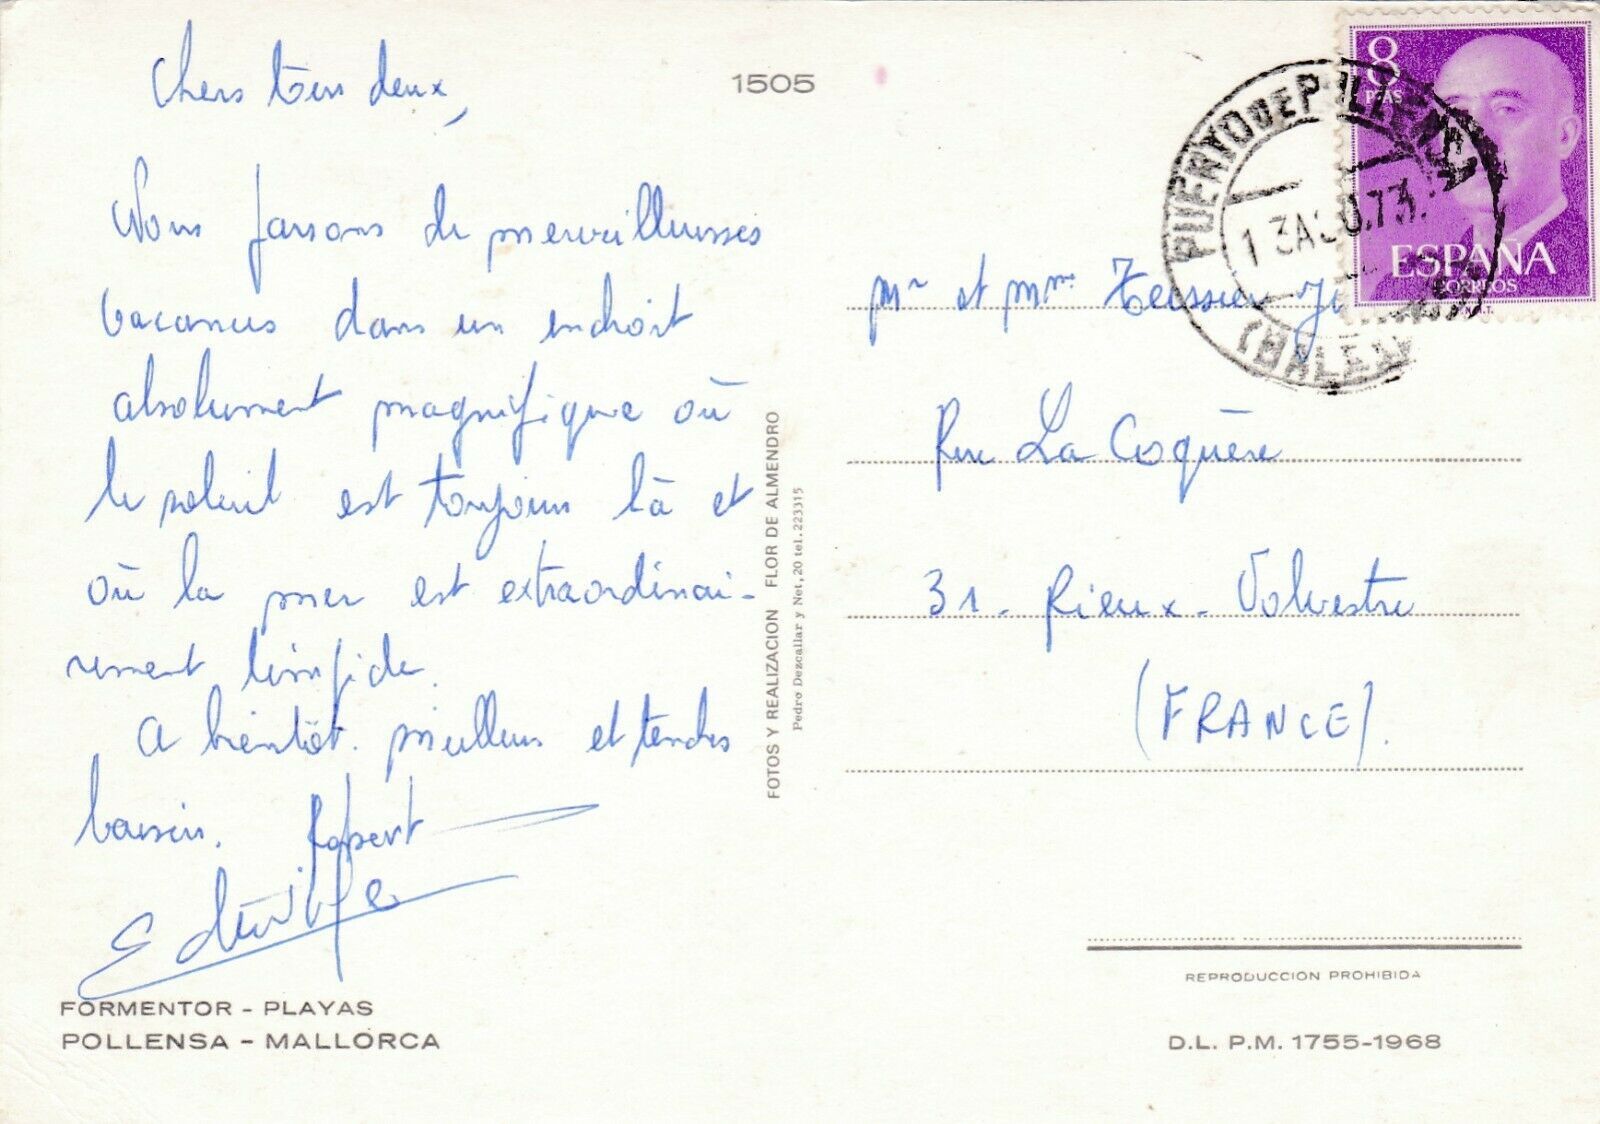 Chers tous deux,
Nous faisons de merveilleuses
vacances dans un endroit
absolument magnifique où
le soleil est toujours là et
où la mer est extraordinai-
rement limpide.
A bientôt. Meilleurs et tendres
baisers. Robert
FORMENTOR - PLAYAS
POLLENSA - MALLORCA
1505
FOTOS Y REALIZACION FLOR DE ALMENDRO
Pedro Dezcallar y Net, 20 tel. 223315
8
PTAS
ESPAÑA
CORREOS
PUERTO DE POLLENSA
13 AGO. 73
(BALEARES)
Mr et Mme Teissier
Rue La Coquère
31 - Rieux - Volvestre
(FRANCE).
REPRODUCCION PROHIBIDA
D.L. P.M. 1755-1968